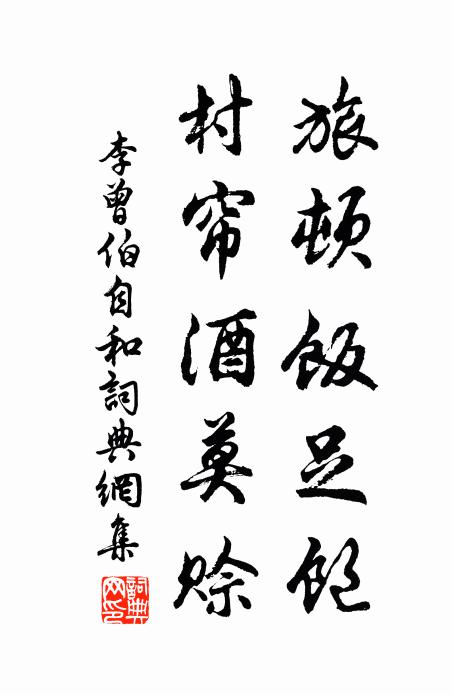 旅頓飯足飽
村帘酒莫賒
李曾伯自和詞典網集
詞典
网印